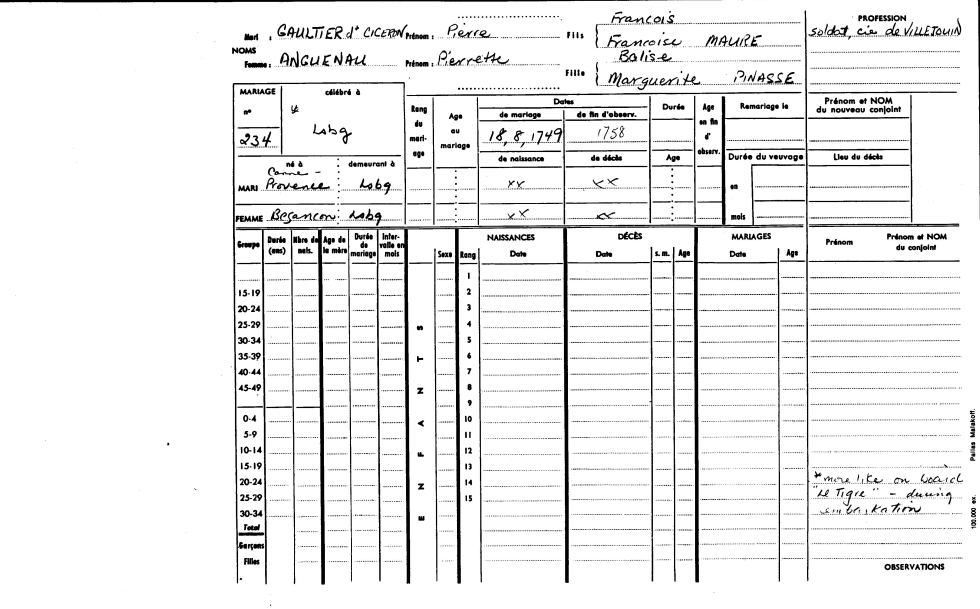 Mari : GAULTIER dt CICERON Prénom : Pierre Fils François
Françoise MAURE
PROFESSION
soldat, cie de VILLEJOUIN
NOMS
Femme : ANGUENAU Prénom : Pierrette Fille Balise
Marguerite PINASSE
MARIAGE célébré à
n° *
234 Lsbg
Rang du mariage
Age au mariage
Dates
de mariage de fin d'observ.
18, 8, 1749 1758
de naissance de décès
Durée
Age
Age en fin d' observ.
Remariage le
Durée du veuvage
en
mois
Prénom et NOM du nouveau conjoint
Lieu du décès
né à demeurant à
MARI Provence Lsbg xx xx
FEMME Besancon Lsbg xx xx
Groupe Durée (ans) Nbre de nais. Age de la mère Durée de mariage Intervalle en mois
ENFANTS
Sexe Rang
NAISSANCES Date
DÉCÈS Date s. m. Age
MARIAGES Date Age
Prénom Prénom et NOM du conjoint
1
15-19 2
20-24 3
25-29 4
30-34 5
35-39 6
40-44 7
45-49 8
9
0-4 10
5-9 11
10-14 12
15-19 13
20-24 14
25-29 15
30-34
Total
Garçons
Filles
* more like on board
"Le Tigre" - during
embarkation
OBSERVATIONS
100.000 ex. Pallas Malakoff.